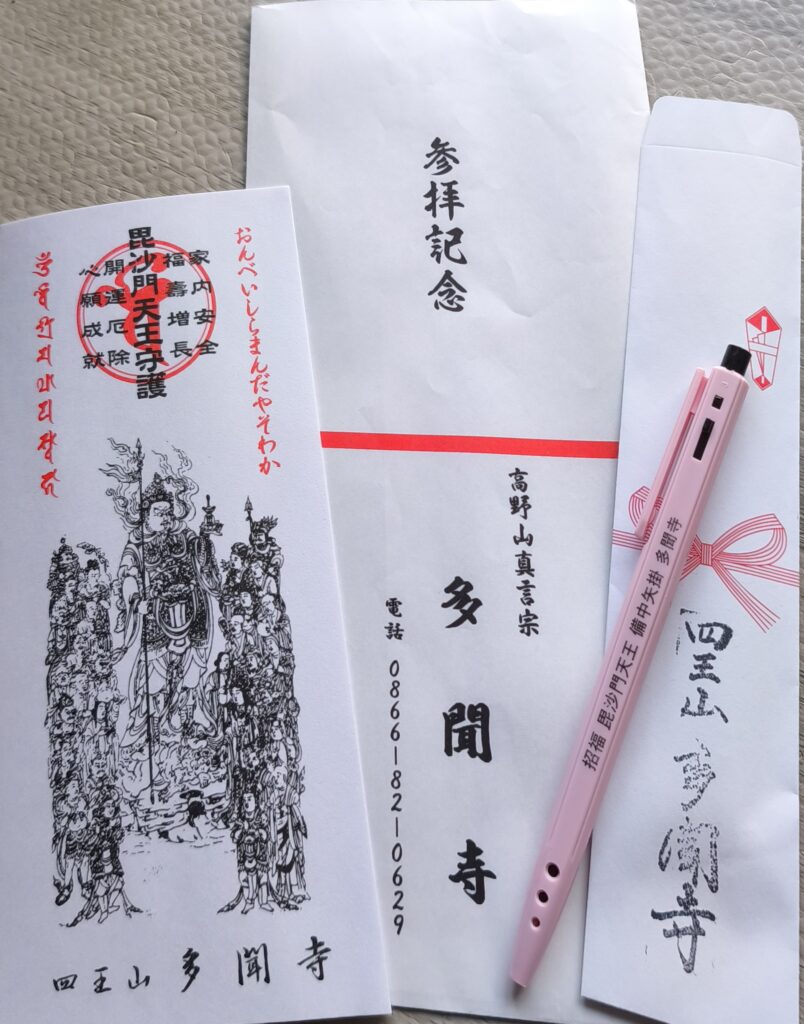 おんべいしらまんだやそわか
家内安全
福壽増長
毘沙門天王守護
開運厄除
心願成就
四王山 多聞寺
参拝記念
高野山真言宗
多聞寺
電話 0866-82-0629
招福 毘沙門天王 備中矢掛 多聞寺
四王山 多聞寺